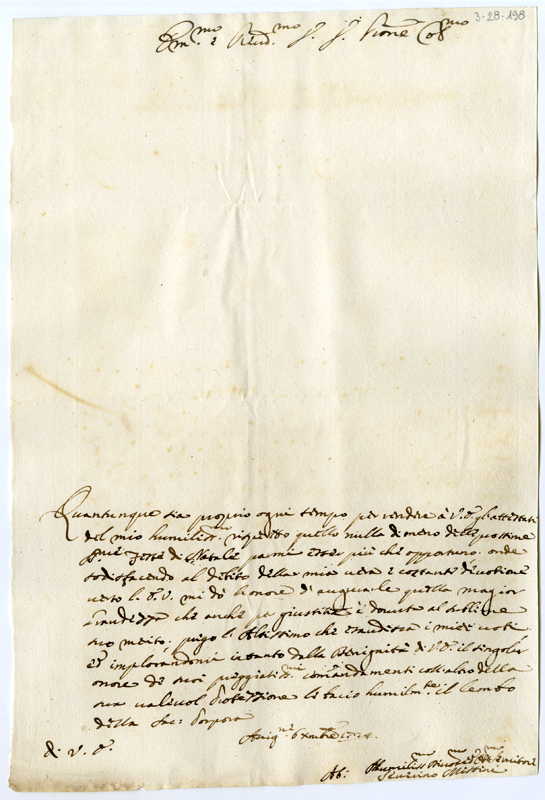 3-28-198
Em.mo e Rev.d.mo S.r S.r Prone Co.mo
Quantunque sia proprio ogni tempo per rendere à V. E. gl'attestati
del mio humiliss.mo rispetto quello nulla di meno delle prossime
S.me Feste di Natale parmi esser più che opportuno, onde
sodisfacendo al debito della mia vera e costante divotione
verso l'E. V. mi dò l'onore di augurarle quella magior
grandezza che anche la giustitia è dovuta al sublime
suo merito; prego l'Altissimo che esaudisca i miei voti
et implorandomi intanto dalla Benignità di V. E. il singolar
onore de suoi preggiatiss.mi comandamenti coll'altro della
sua valevol Protezzione le bacio humilm.te il lembo
della Sac: Porpora
di V. E.
Humiliss.mo Devo.mo Servitore
Severino